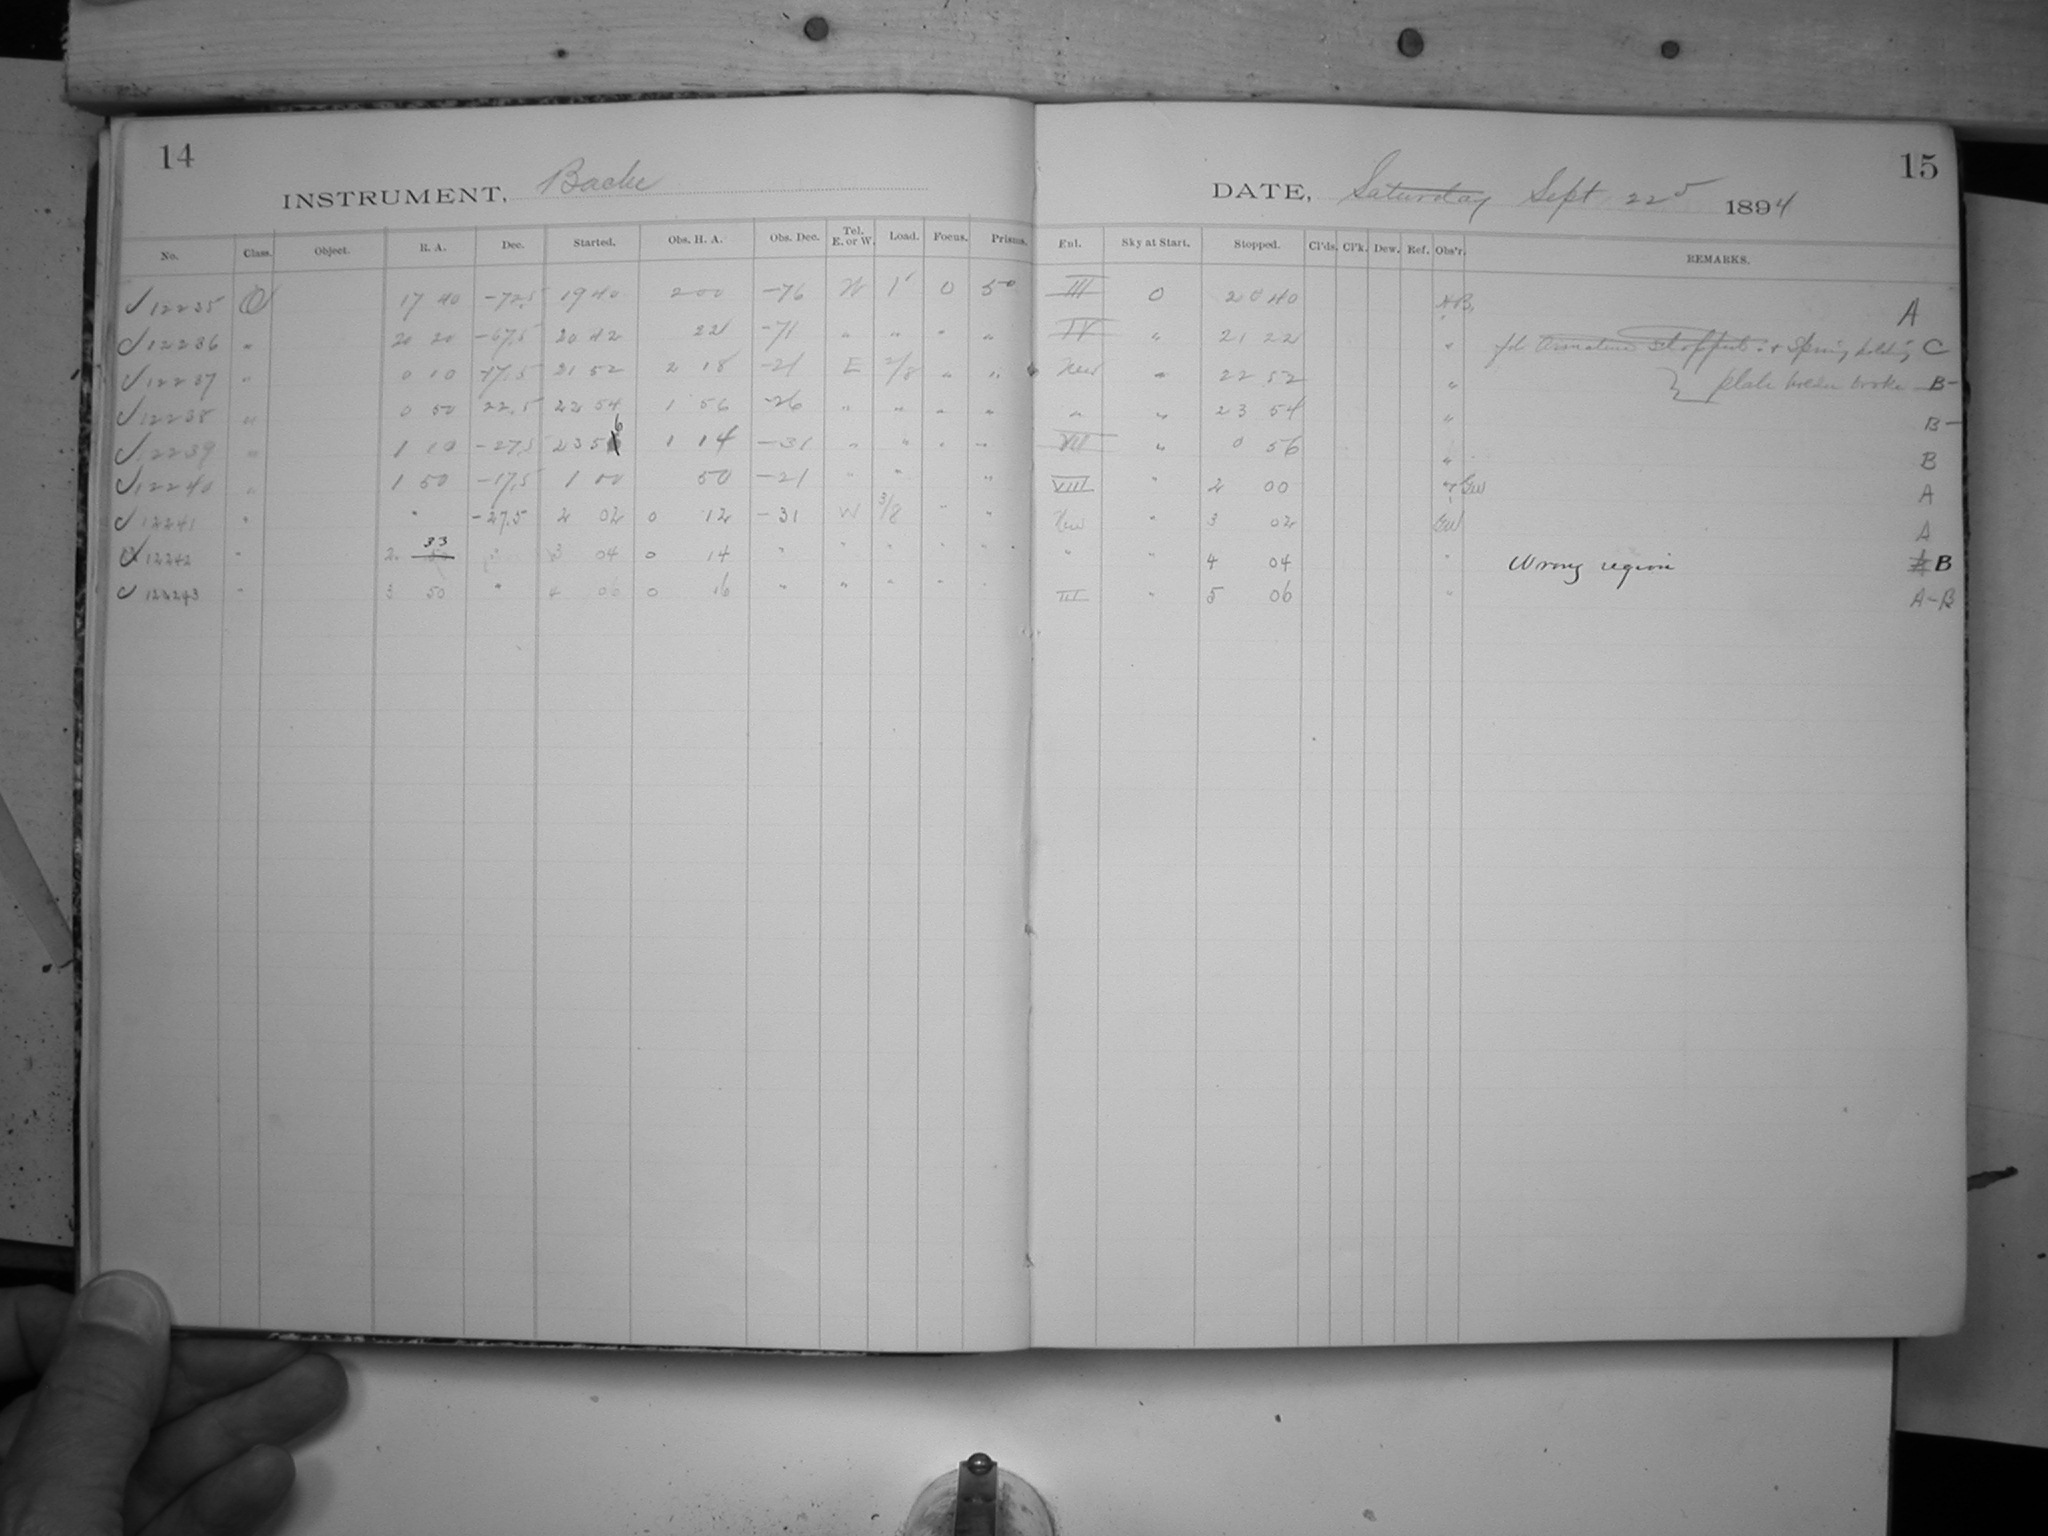 14
INSTRUMENT, Bache
No. Class. Object. R. A. Dec. Started. Obs. H. A. Obs. Dec. Tel. E. or W. Load. Focus. Prisms.
✓ 12235 O 17 40 -72.5 19 40 2 00 -76 W 1 0 50
✓ 12236 " 20 20 -67.5 20 42 22 -71 " " " "
✓ 12237 " 0 10 -17.5 21 52 2 18 -21 E 2/8 " "
✓ 12238 " 0 50 22.5 22 54 1 56 -26 " " " "
✓ 12239 " 1 10 -27.5 23 56 1 14 -31 " " " "
✓ 12240 " 1 50 -17.5 1 00 50 -21 " " "
✓ 12241 " " -27.5 2 02 0 12 -31 W 3/8 " "
12242 " 2 33 " 3 04 0 14 " " " " "
✓ 122243 " 3 50 " 4 06 0 16 " " " " "
15
DATE, Saturday Sept 22 1894
Enl. Sky at Start. Stopped. Cl'ds. Cl'k. Dew. Ref. Obs'r. REMARKS.
III 0 20 40 A
IV " 21 22 " armature stopped & Spring holding C
New " 22 52 " } plate holder broke B-
" " 23 54 " B-
VII " 0 56 " B
VIII " 2 00 " GW A
New " 3 02 GW A
" " 4 04 " Wrong region B
III " 5 06 " A-B